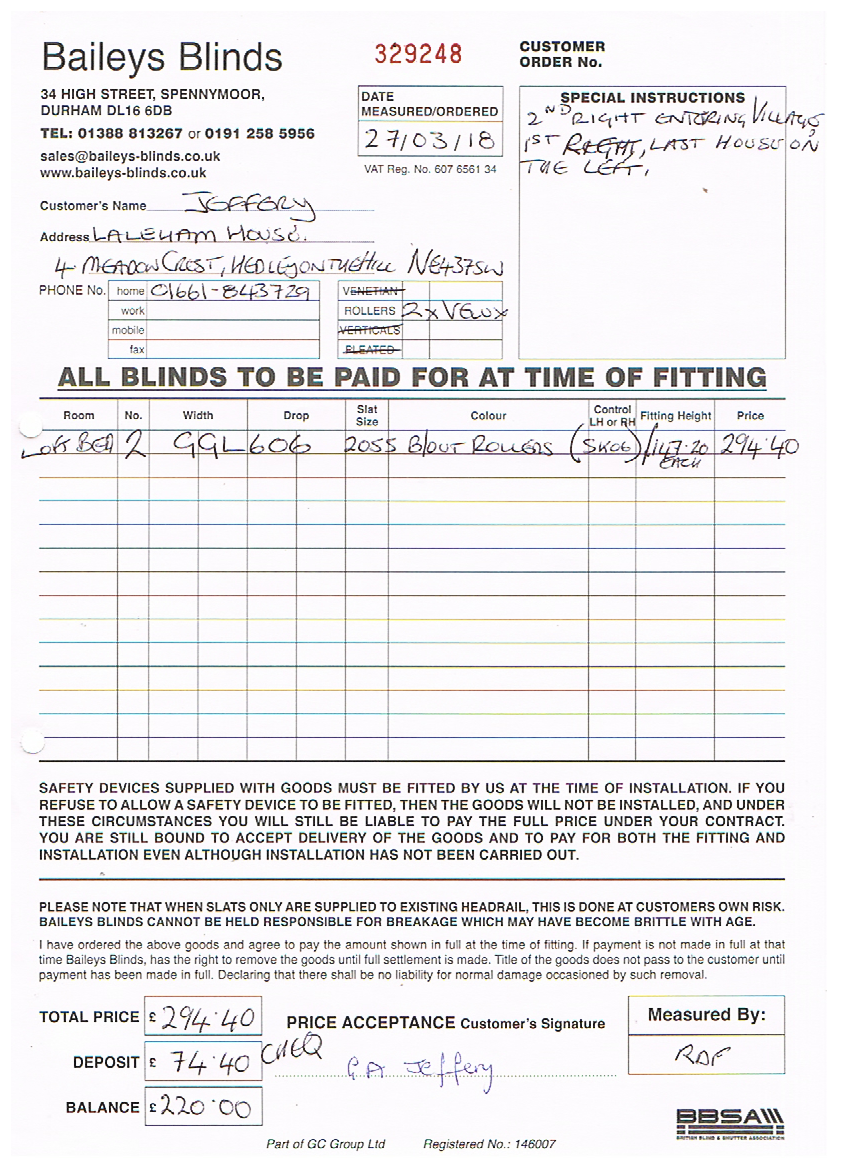 Baileys Blinds
329248
CUSTOMER
ORDER No.
34 HIGH STREET, SPENNYMOOR,
DURHAM DL16 6DB
TEL: 01388 813267 or 0191 258 5956
sales@baileys-blinds.co.uk
www.baileys-blinds.co.uk
DATE
MEASURED/ORDERED
27/03/18
VAT Reg. No. 607 6561 34
SPECIAL INSTRUCTIONS
2ND RIGHT ENTERING VILLAGE,
1ST RIGHT, LAST HOUSE ON
THE LEFT,
Customer's Name JEFFERY
Address LALEHAM HOUSE.
4 MEADOW CREST, HEDLEY ON THE HILL NE43 7SW
PHONE No. home 01661-843729
work
mobile
fax
VENETIAN
ROLLERS 2 x VELUX
VERTICALS
PLEATED
ALL BLINDS TO BE PAID FOR AT TIME OF FITTING
Room No. Width Drop Slat Size Colour Control LH or RH Fitting Height Price
LOFT BED 2 GGL 606 2055 B/OUT ROLLERS (SK06) 147.20 EACH 294.40
SAFETY DEVICES SUPPLIED WITH GOODS MUST BE FITTED BY US AT THE TIME OF INSTALLATION. IF YOU
REFUSE TO ALLOW A SAFETY DEVICE TO BE FITTED, THEN THE GOODS WILL NOT BE INSTALLED, AND UNDER
THESE CIRCUMSTANCES YOU WILL STILL BE LIABLE TO PAY THE FULL PRICE UNDER YOUR CONTRACT.
YOU ARE STILL BOUND TO ACCEPT DELIVERY OF THE GOODS AND TO PAY FOR BOTH THE FITTING AND
INSTALLATION EVEN ALTHOUGH INSTALLATION HAS NOT BEEN CARRIED OUT.
PLEASE NOTE THAT WHEN SLATS ONLY ARE SUPPLIED TO EXISTING HEADRAIL, THIS IS DONE AT CUSTOMERS OWN RISK.
BAILEYS BLINDS CANNOT BE HELD RESPONSIBLE FOR BREAKAGE WHICH MAY HAVE BECOME BRITTLE WITH AGE.
I have ordered the above goods and agree to pay the amount shown in full at the time of fitting. If payment is not made in full at that
time Baileys Blinds, has the right to remove the goods until full settlement is made. Title of the goods does not pass to the customer until
payment has been made in full. Declaring that there shall be no liability for normal damage occasioned by such removal.
TOTAL PRICE £ 294.40
DEPOSIT £ 74.40 CHEQ
BALANCE £ 220.00
PRICE ACCEPTANCE Customer's Signature
G A Jeffery
Measured By:
RDF
BBSA
BRITISH BLIND & SHUTTER ASSOCIATION
Part of GC Group Ltd Registered No.: 146007